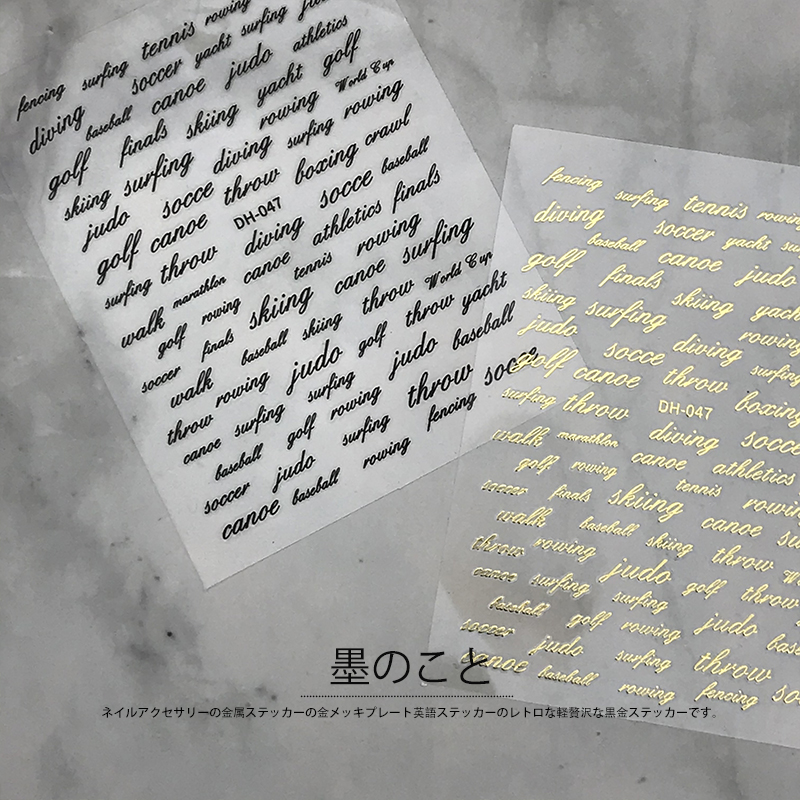 fencing surfing tennis rowing
diving soccer yacht surfing
baseball canoe judo athletics
golf finals skiing yacht golf
skiing surfing rowing World Cup
judo socce diving surfing rowing
golf canoe throw boxing crawl
surfing throw DH-047 diving socce baseball
walk marathlon canoe athletics finals
golf rowing tennis rowing
soccer finals skiing canoe surfing
walk baseball skiing throw World Cup
throw rowing judo golf throw yacht
canoe surfing surfing judo baseball
baseball golf rowing throw socce
soccer judo surfing fencing
canoe baseball rowing
fencing surfing tennis rowing
diving soccer yacht
baseball canoe judo
golf finals skiing yacht
skiing surfing rowing
judo socce diving surfing
golf canoe throw boxing
surfing throw DH-047
walk marathlon diving socce
golf rowing canoe athletics
tennis rowing
soccer finals skiing canoe
walk baseball skiing throw
throw rowing judo golf throw
canoe surfing surfing judo
baseball golf rowing
soccer judo surfing throw
canoe baseball rowing fencing
墨のこと
ネイルアクセサリーの金属ステッカーの金メッキプレート英語ステッカーのレトロな軽贅沢な黒金ステッカーです。